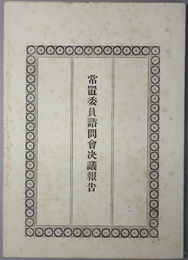 常置委員諮問會決議報告